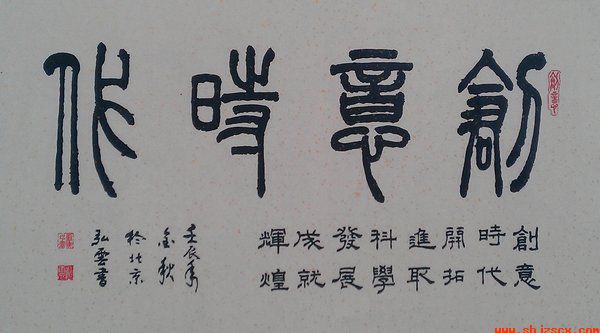 創意時代
創意
時代
開拓
進取
科學
發展
成就
輝煌
壬辰年
金秋
於北京
弘雲書
www.shizscx.com